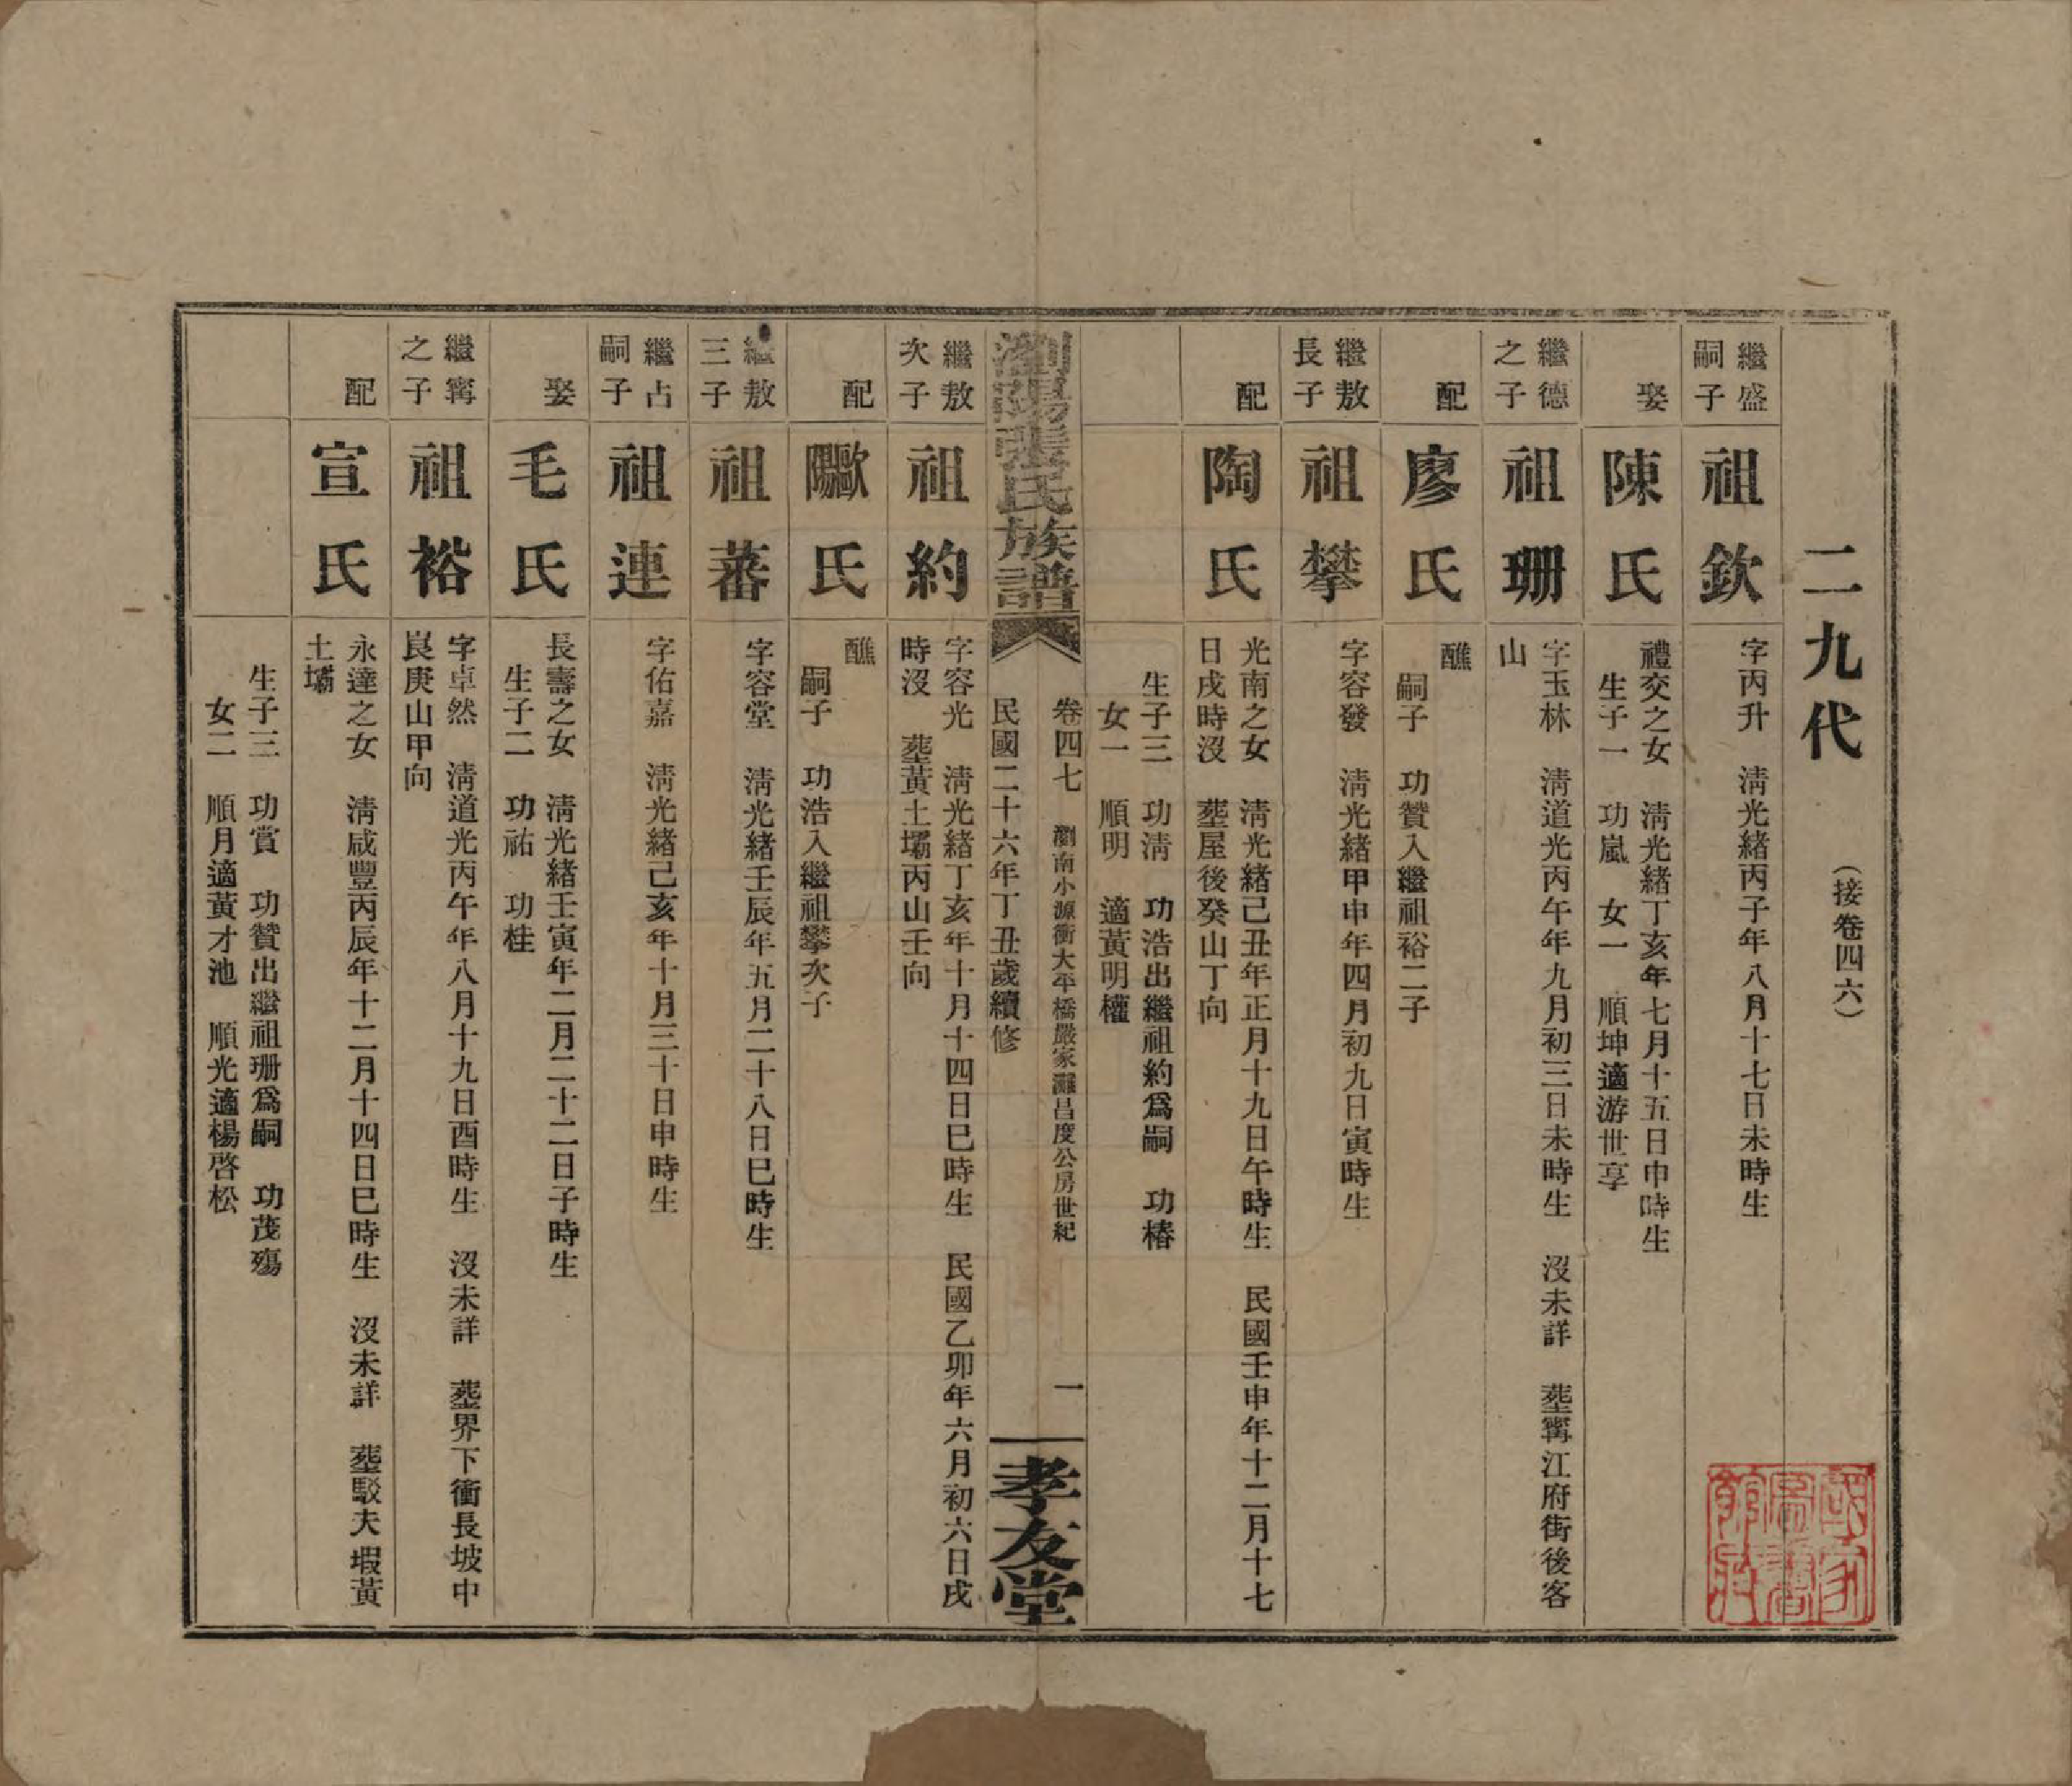 二九代　（接卷四六）
繼盛
嗣子
祖欽
字丙升　清光緒丙子年八月十七日未時生
娶
陳氏
禮交之女　清光緒丁亥年七月十五日申時生
生子一　功嵐　女一　順坤適游世享
繼德
之子
祖珊
字玉林　清道光丙午年九月初三日未時生　沒未詳　塟寗江府街後客
山
配
廖氏
醮
嗣子　功贊入繼祖裕二子
繼敖
長子
祖攀
字容發　清光緒甲申年四月初九日寅時生
配
陶氏
光南之女　清光緒己丑年正月十九日午時生　民國壬申年十二月十七
日戌時沒　塟屋後癸山丁向
生子三　功清　功浩出繼祖約爲嗣　功椿
女一　順明　適黃明權
瀏陽張氏族譜
卷四七　瀏南小源衝大平橋嚴家灘昌度公房世紀　一
民國二十六年丁丑歲續修
孝友堂
繼敖
次子
祖約
字容光　清光緒丁亥年十月十四日巳時生　民國乙卯年六月初六日戌
時沒　塟黃土壩丙山壬向
配
歐陽氏
醮
嗣子　功浩入繼祖攀次子
繼敖
三子
祖蕃
字容堂　清光緒壬辰年五月二十八日巳時生
繼占
嗣子
祖連
字佑嘉　清光緒己亥年十月三十日申時生
娶
毛氏
長壽之女　清光緒壬寅年二月二十二日子時生
生子二　功祐　功桂
繼寗
之子
祖裕
字卓然　清道光丙午年八月十九日酉時生　沒未詳　塟界下衝長坡中
艮庚山甲向
配
宣氏
永達之女　清咸豐丙辰年十二月十四日巳時生　沒未詳　塟駁夫塅黃
土壩
生子三　功賞　功贊出繼祖珊爲嗣　功茂殤
女二　順月適黃才池　順光適楊啓松